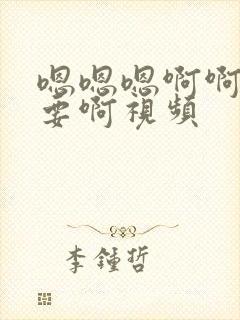 嗯嗯嗯啊啊
要啊視頻
李鍾哲